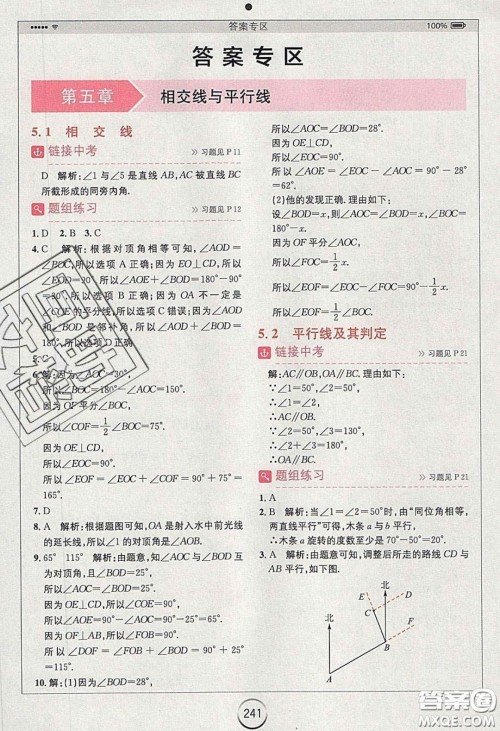 答案专区
100%
答案专区
第五章 相交线与平行线
5.1 相交线
链接中考
>习题见P11
D 解析:∠1与∠5是直线AB,AC被直线BC
所截形成的同旁内角.
题组练习
>习题见P12
1.D 2.B 3.C
4.C 解析:根据对顶角相等可知,∠AOD=
∠BOC,所以选项A正确;因为EO⊥CD,所
以∠EOD=90°,所以∠AOE+∠BOD=180°-90°
以选项B正确;因为∠AOE不一定是
所以选项C错误;∠AOD+∠BOD=
180°,所以选项D正确.
5.C
6.解:因为∠AOC=30°,
所以∠BOC=180°-∠AOC=150°.
因为OF平分∠BOC,
所以∠COF=1/2∠BOC=75°.
因为OE⊥CD,
所以∠EOC=90°.
所以∠EOF=∠EOC+∠COF=90°+75°=
165°.
7.D
8.A 解析:根据题图可知,OA是射入水中前光线
的延长线,所以∠1的对顶角是∠AOB.
9.65° 115° 解析:由题意,知∠AOC与∠BOD互
为对顶角,且∠BOD=25°,
所以∠AOC=∠BOD=25°.
因为OE⊥CD,所以∠COE=90°,
所以∠AOE=90°-∠AOC=90°-25°=65°.
因为OF⊥AB,所以∠FOB=90°,
所以∠DOF=∠FOB+∠BOD=90°+25°
=115°.
10.解:(1)因为∠BOD=28°,
所以∠AOC=∠BOD=28°.
因为OE⊥CD,
所以∠EOC=90°.
所以∠AOE=∠EOC-∠AOC=90°-28°
=62°.
(2)他的发现正确.理由如下:
设∠BOD=x,则∠AOC=∠BOD=x,
∠EOA=90°-x.
因为OF平分∠AOC,
所以∠FOC=1/2x.
所以∠EOF=90°-1/2x.
所以∠EOF=∠EOA+∠FOC.
5.2 平行线及其判定
链接中考
>习题见P21
解:AC∥OB,OA∥BC.理由如下:
∵∠1=50°,∠2=50°,
∴∠1=∠2.
∴AC∥OB.
∵∠2=50°,∠3=130°,
∴∠2+∠3=180°.
∴OA∥BC.
题组练习
>习题见P21
1.A
2.B 解析:当∠1=∠2=50°时,由“同位角相等,
两直线平行”可知,木条a与b平行,
∴木条a旋转的度数至少是70°-50°=20°.
3.A 解析:由题意可知,调整后所走的路线CD与
AB平行,如下图.
北
E
D
C
北
F
B
A
241
答案圈
MXQE.COM